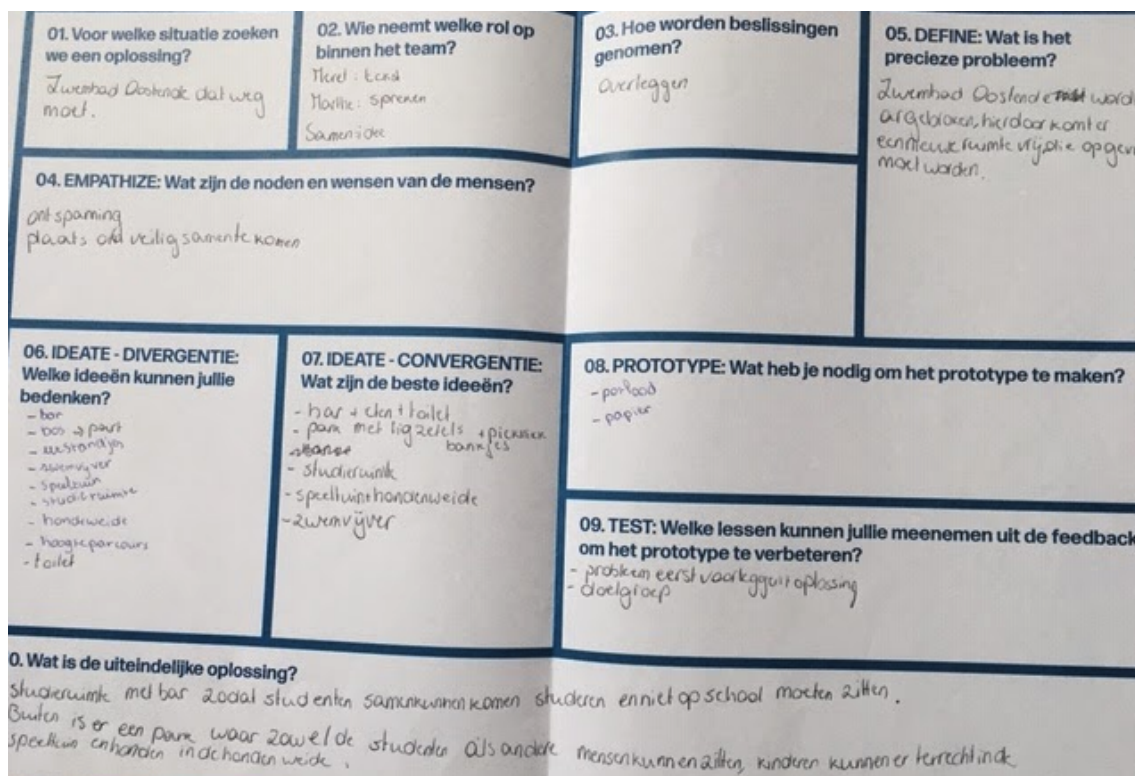 01. Voor welke situatie zoeken
we een oplossing?
Zwembad Oostende dat weg
moet.
02. Wie neemt welke rol op
binnen het team?
Merel: tekst
Marthe: spreken
Samen: idee
03. Hoe worden beslissingen
genomen?
overleggen
04. EMPATHIZE: Wat zijn de noden en wensen van de mensen?
ontspanning
plaats om veilig samen te komen
05. DEFINE: Wat is het
precieze probleem?
Zwembad Oostende word
afgebroken, hierdoor komt er
een nieuwe ruimte vrij, die
moet worden.
06. IDEATE - DIVERGENTIE:
Welke ideeën kunnen jullie
bedenken?
- bar
- bos → park
- eetstandjes
- zwemvijver
- speeltuin
- studieruimte
- hondeweide
- hoogteparcours
- toilet
07. IDEATE - CONVERGENTIE:
Wat zijn de beste ideeën?
- bar + eten + toilet
- park met ligzetels + picknick
bankjes
- studieruimte
- speeltuin + hondenweide
- zwemvijver
08. PROTOTYPE: Wat heb je nodig om het prototype te maken?
- potlood
- papier
09. TEST: Welke lessen kunnen jullie meenemen uit de feedback
om het prototype te verbeteren?
- probleem eerst voorleggen oplossing
- doelgroep
0. Wat is de uiteindelijke oplossing?
Studieruimte met bar zodat studenten samen kunnen komen studeren en niet op school moeten zitten.
Buiten is er een park waar zowel de studenten als andere mensen kunnen zitten, kinderen kunnen er terrecht in de
speeltuin en honden in de hondenweide.